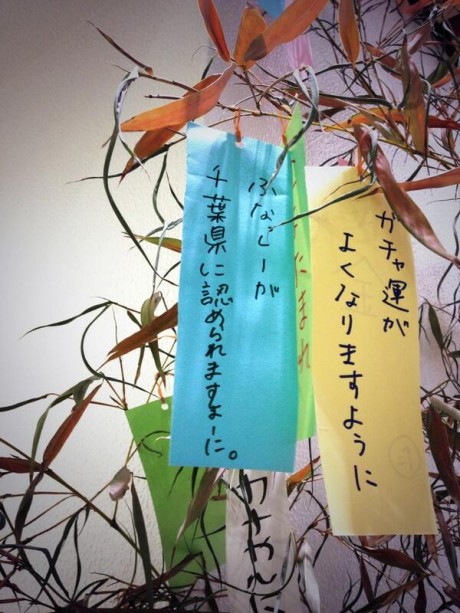 ガチャ運が
よくなりますように
ふなっしーが
千葉県に認められますよーに。